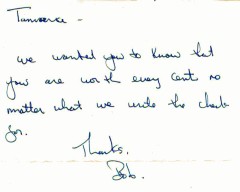 we wanted you to know that
you are worth every cent no
matter what we wrote the check
for.
Thanks.
Bob.